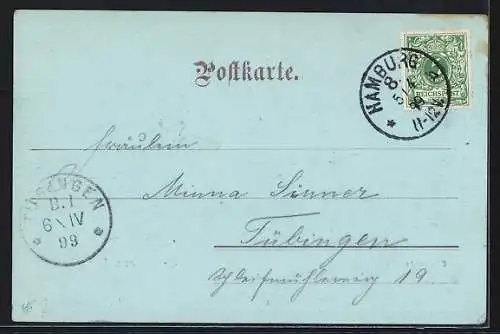 Postkarte.
HAMBURG
8
5/4
99
11-12 V
REICHSPOST
Fräulein
Minna Sinner
Tübingen
Schleifmühleweg 19.
TUBINGEN
B.I
6 \ IV
99